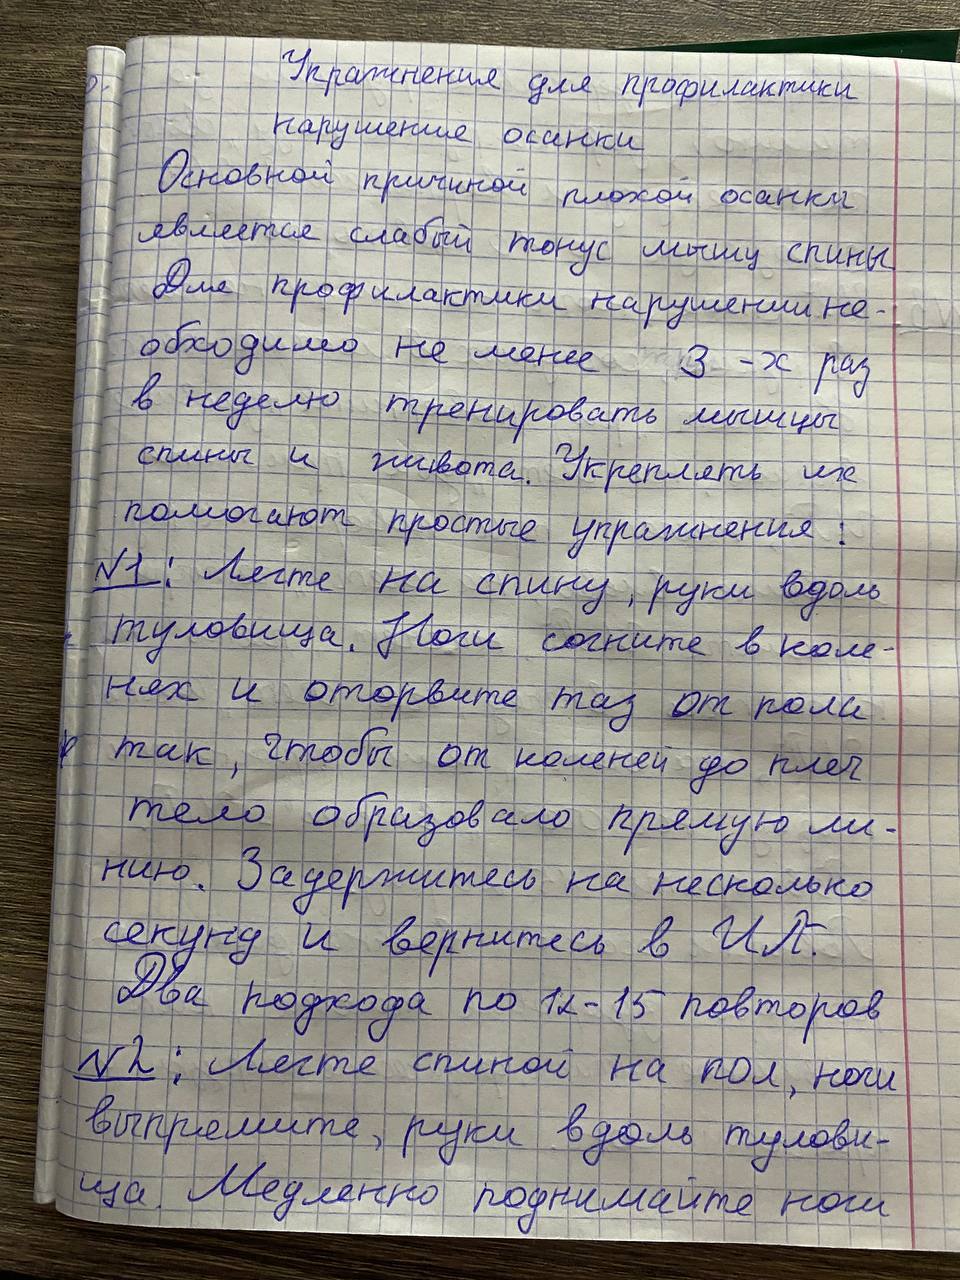 Упражнения для профилактики
нарушение осанки
Основной причиной плохой осанки
является слабый тонус мышц спины
Для профилактики нарушении не-
обходимо не менее 3-х раз
в неделю тренировать мышцы
спины и живота. Укреплять их
помогают простые упражнения:
N1: Лягте на спину, руки вдоль
туловища. Ноги согните в коле-
нях и оторвите таз от пола
так, чтобы от коленей до плеч
тело образовало прямую ли-
нию. Задержитесь на несколько
секунд и вернитесь в И.П.
Два подхода по 12-15 повторов
N2: Лягте спиной на пол, ноги
выпрямите, руки вдоль тулови-
ща. Медленно поднимайте ноги